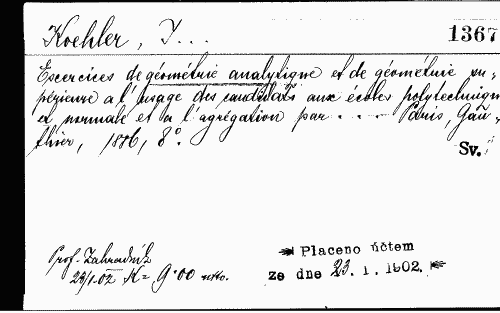 Koehler, J... 1367
Excercices de géométrie analytique et de géométrie su-
périeure a l'usage des candidats aux écoles polytechnique
et normale et a l'agrégation par . . . . Paris, Gau-
thier, 1886, 8°.
Sv.
Prof. Zahradník
23/1.02 K= 9.00 netto.
Placeno účtem
ze dne 23. 1. 1902.